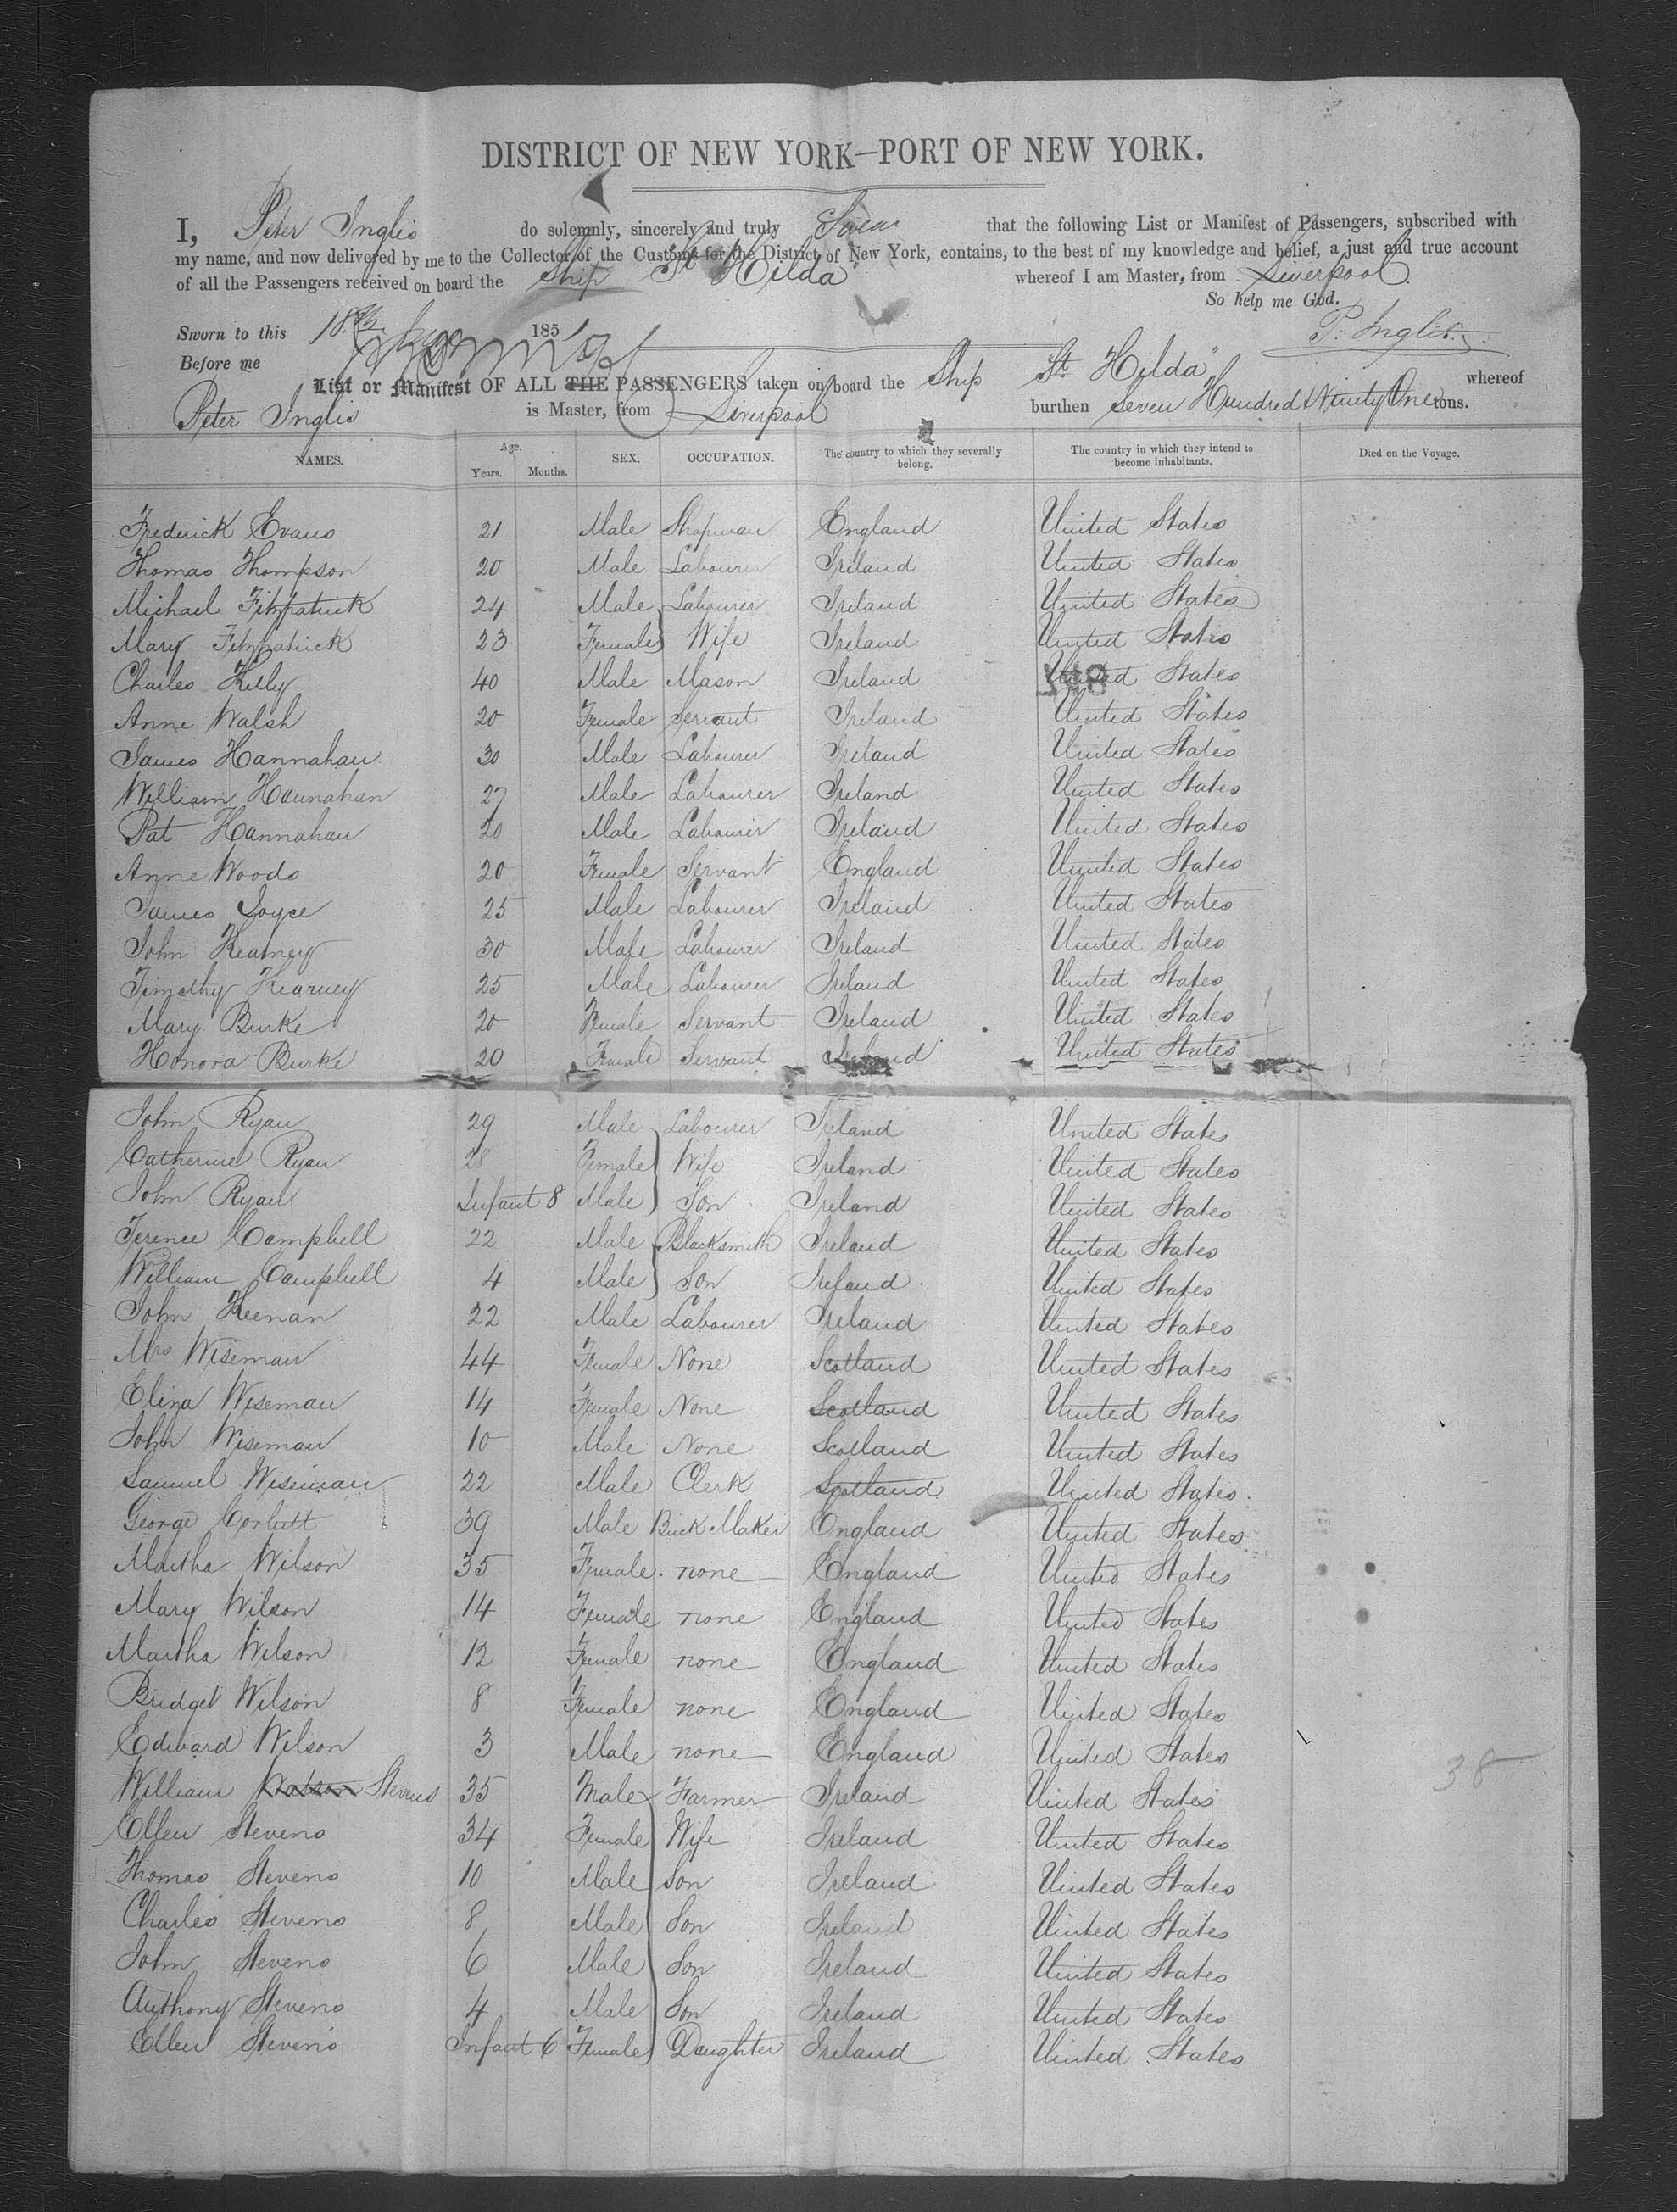 DISTRICT OF NEW YORK—PORT OF NEW YORK.
I, Peter Inglis do solemnly, sincerely and truly Swear that the following List or Manifest of Passengers, subscribed with
my name, and now delivered by me to the Collector of the Customs for the District of New York, contains, to the best of my knowledge and belief, a just and true account
of all the Passengers received on board the Ship St Hilda whereof I am Master, from Liverpool.
So help me God.
Sworn to this 18th 1851
P. Inglis
Before me
List or Manifest OF ALL THE PASSENGERS taken on board the Ship St. Hilda whereof
Peter Inglis is Master, from Liverpool burthen Seven Hundred & Ninety One tons.
NAMES. Age. Years. Months. SEX. OCCUPATION. The country to which they severally belong. The country in which they intend to become inhabitants. Died on the Voyage.
Frederick Evans 21 Male Shopman England United States
Thomas Thompson 20 Male Labourer Ireland United States
Michael Fitzpatrick 24 Male Labourer Ireland United States
Mary Fitzpatrick 23 Female Wife Ireland United States
Charles Kelly 40 Male Mason Ireland United States
Anne Walsh 20 Female Servant Ireland United States
James Hannahan 30 Male Labourer Ireland United States
William Hannahan 27 Male Labourer Ireland United States
Pat Hannahan 20 Male Labourer Ireland United States
Anne Woods 20 Female Servant England United States
James Joyce 25 Male Labourer Ireland United States
John Kearney 30 Male Labourer Ireland United States
Timothy Kearney 25 Male Labourer Ireland United States
Mary Burke 20 Female Servant Ireland United States
Honora Burke 20 Female Servant Ireland United States
John Ryan 29 Male Labourer Ireland United States
Catherine Ryan 28 Female Wife Ireland United States
John Ryan Infant 8 Male Son Ireland United States
Terence Campbell 22 Male Blacksmith Ireland United States
William Campbell 4 Male Son Ireland United States
John Keenan 22 Male Labourer Ireland United States
Mrs Wiseman 44 Female None Scotland United States
Eliza Wiseman 14 Female None Scotland United States
John Wiseman 10 Male None Scotland United States
Samuel Wiseman 22 Male Clerk Scotland United States
George Corbitt 39 Male Brick Maker England United States
Martha Wilson 35 Female none England United States
Mary Wilson 14 Female none England United States
Martha Wilson 12 Female none England United States
Bridget Wilson 8 Female none England United States
Edward Wilson 3 Male none England United States
William Watson Stevens 35 Male Farmer Ireland United States
38
Ellen Stevens 34 Female Wife Ireland United States
Thomas Stevens 10 Male Son Ireland United States
Charles Stevens 8 Male Son Ireland United States
John Stevens 6 Male Son Ireland United States
Anthony Stevens 4 Male Son Ireland United States
Ellen Stevens Infant 6 Female Daughter Ireland United States